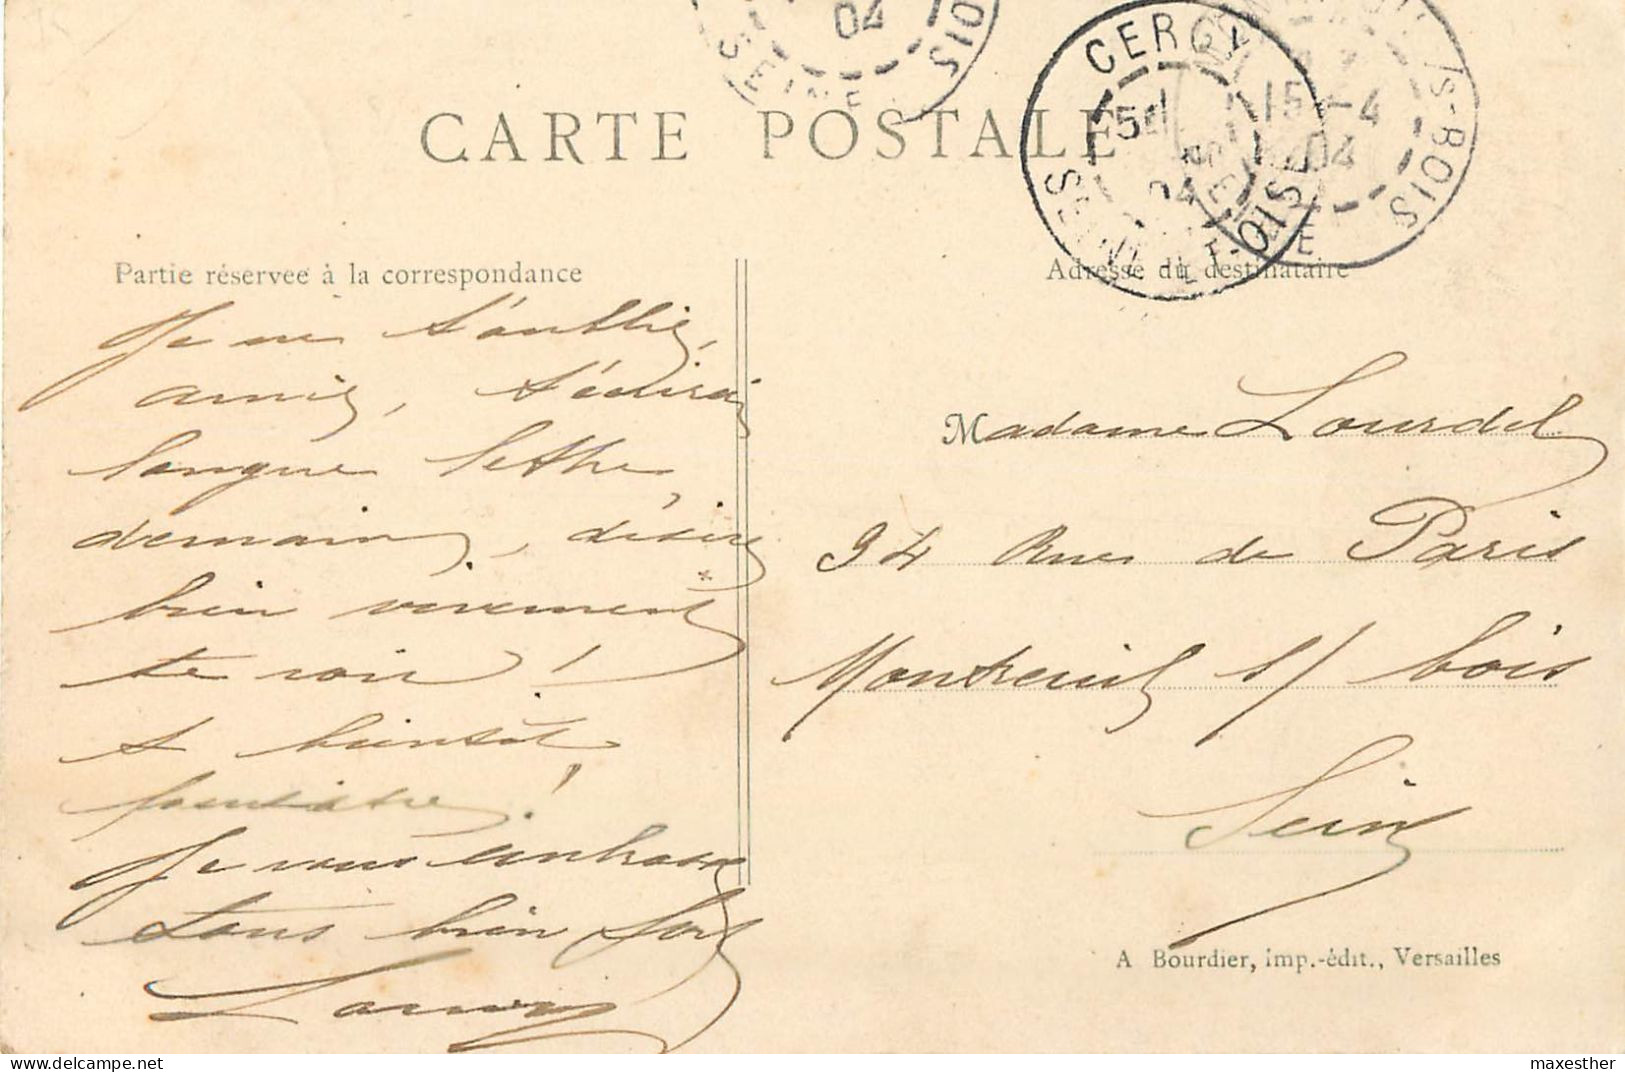 04
SEINE
OIS
CERGY
SEINE-ET-OISE
04
15 -4
04
S-BOIS
CARTE POSTALE
Partie réservée à la correspondance
Adresse du destinataire
Je ne t'oublie,
amie, t'écirai
longue lettre,
demain, désire
bien vivement
te voir !
A bientôt
peut-être !
Je vous embrasse
tous bien fort
Madame Lourdel
94 Rue de Paris
Montreuil s/ bois
Seine
A Bourdier, imp.-édit., Versailles
maxesther